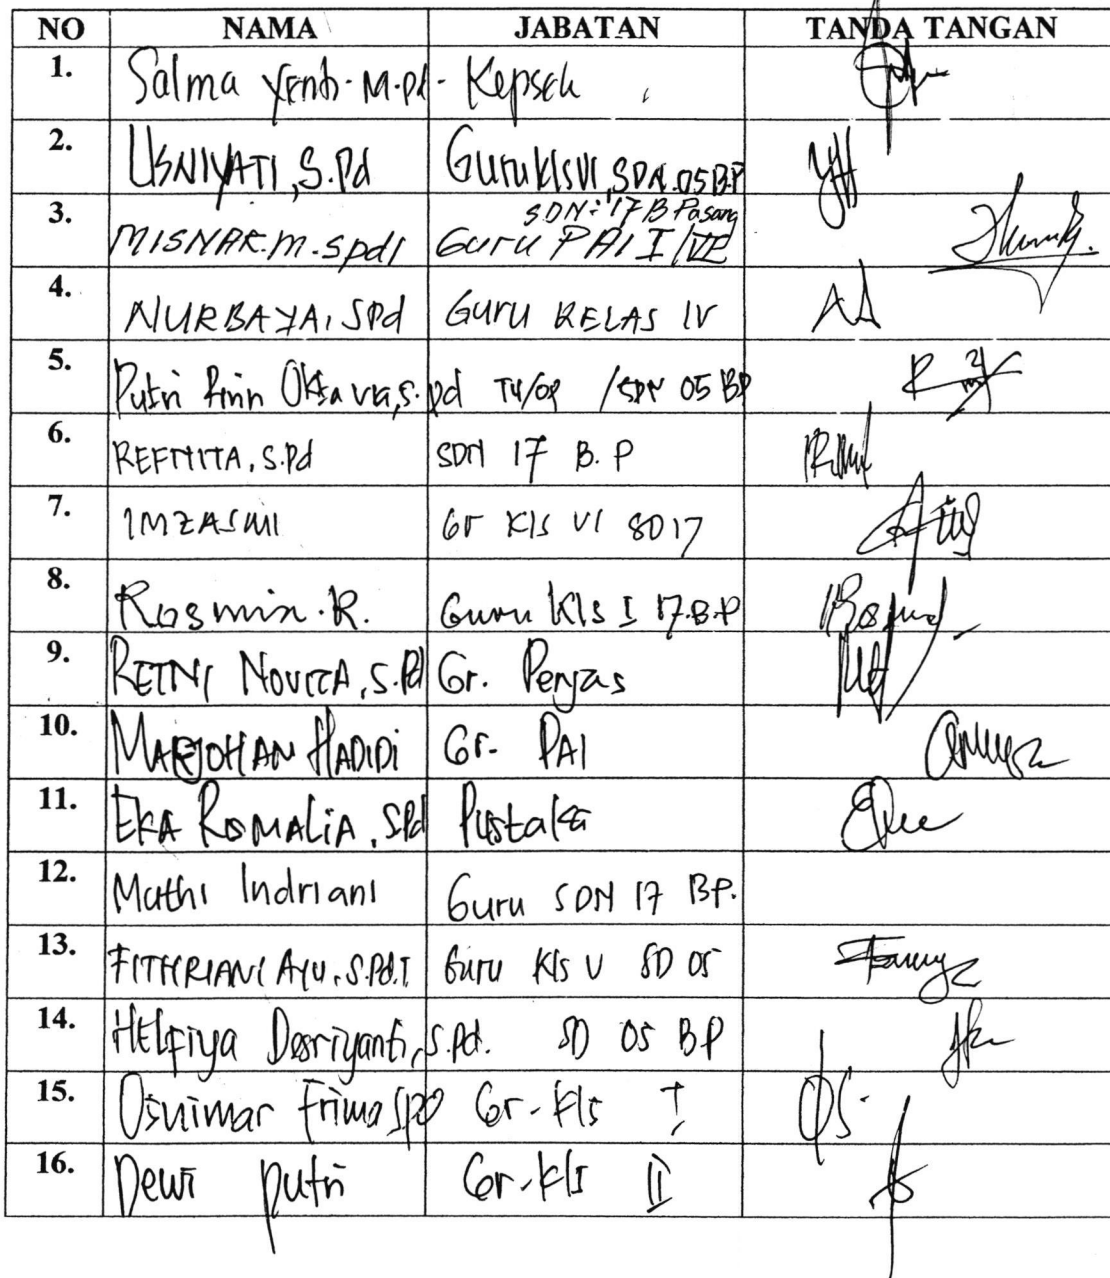 NO NAMA JABATAN TANDA TANGAN
1. Salma Yenti. M.Pd - Kepsek
2. USNIYATI, S.Pd Guru Kls VI, SDN. 05 B.P
SDN: 17 B Pasang
3. MISNAR.M.Spdi Guru PAI I/VI
4. NURBAYA, SPd Guru KELAS IV
5. Putri Oktavia, S.pd TU/OP /SDN 05 BP
6. REFNITA, S.Pd SDN 17 B. P
7. IMZASMI Gr Kls VI SD 17
8. Rosmin. R. Guru Kls I 17.B.P
9. RETNI NOVITA, S.Pd Gr. Penjas
10. MARJOHAN HADIDI Gr. PAI
11. EKA ROMALIA, S.Pd Pustaka
12. Muthi Indriani Guru SDN 17 BP.
13. FITHRIANI AYU, S.Pd.I Guru Kls V SD 05
14. HELFIya Desriyanti, S.Pd. SD 05 BP
15. Osnimar Erima SPd Gr. Kls I
16. Dewi putri Gr. Kls II